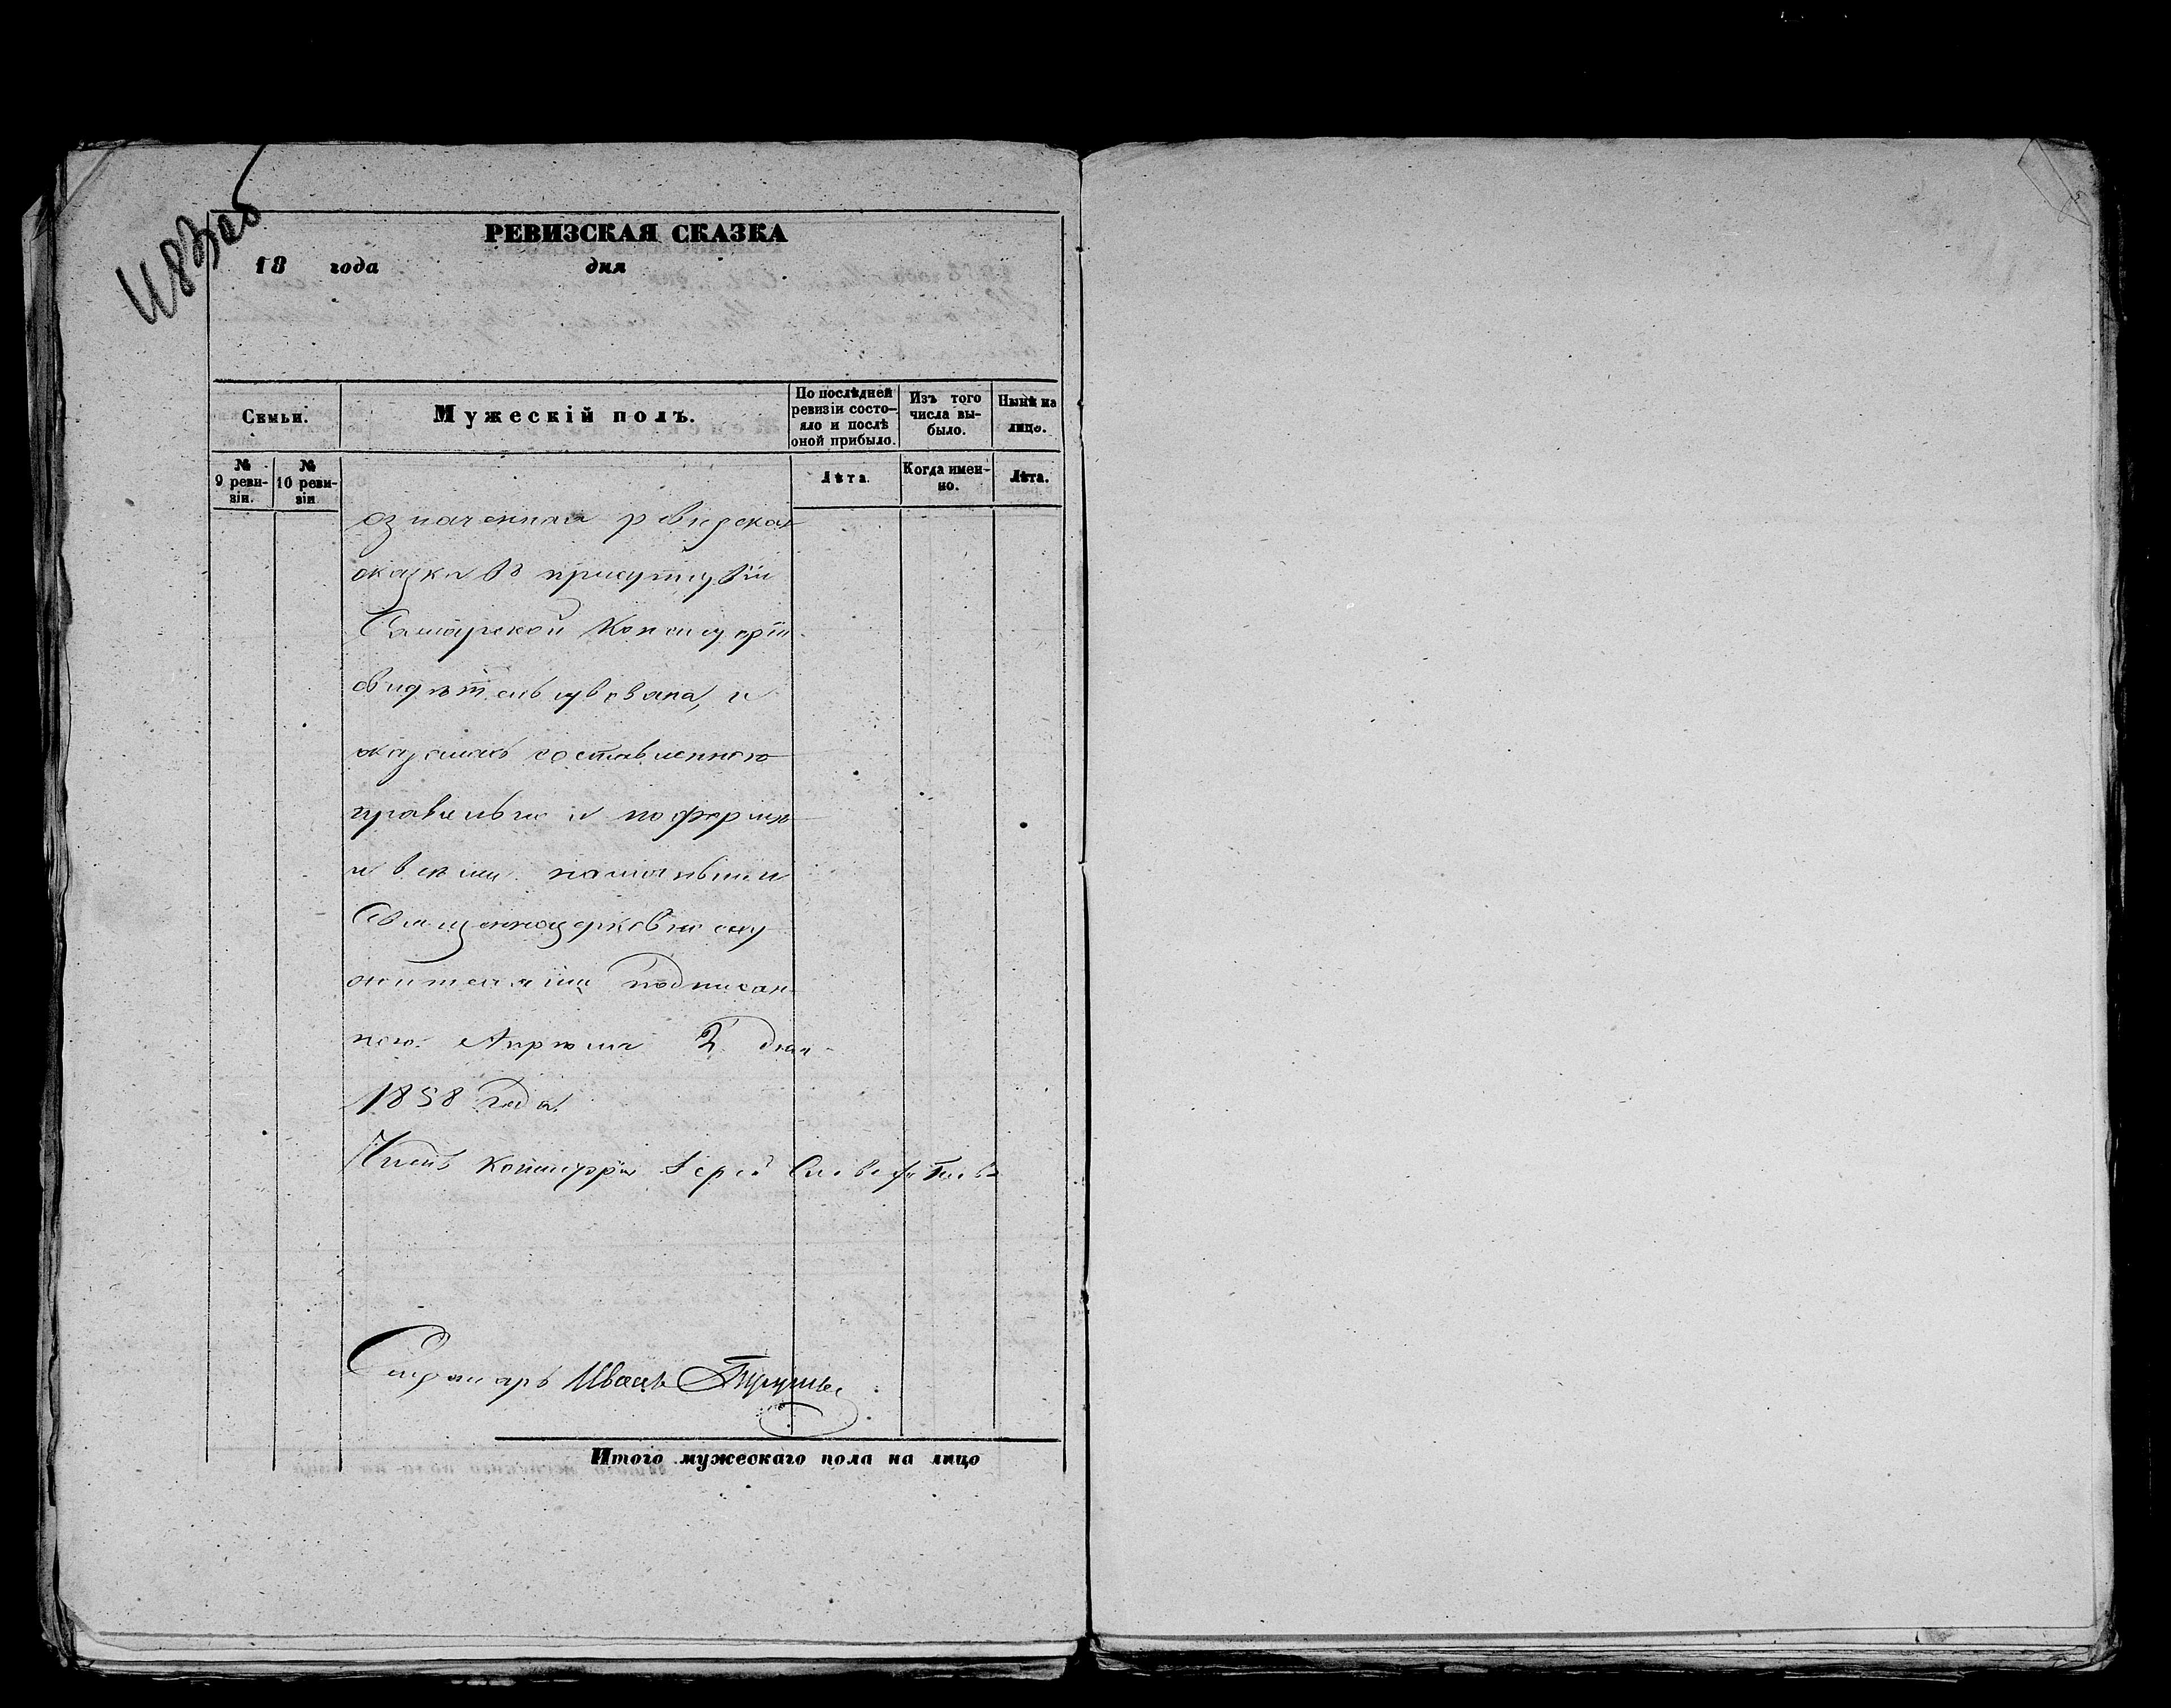 РЕВИЗСКАЯ СКАЗКА
18 года дня
Семьи.
Мужескій полъ.
По послѣдней ревизіи состо-
яло и послѣ оной прибыло.
Изъ того числа вы-
было.
Нынѣ на лицо.
№ 9 реви-
зіи.
№ 10 реви-
зіи
Лѣта.
Когда имен-
но.
Лѣта.
означенная ревизская
сказка въ присутствіи
Самарской Консисторіи
свидѣтельствована, и
оказалась составленною
правильно и по формѣ
и всѣми наличными
Священноцерковнослу
жителями подписан-
ною. Апрѣля 2 дня
1858 года.
Членъ Консисторіи Іерей
Секретарь Иванъ
Итого мужескаго пола на лицо